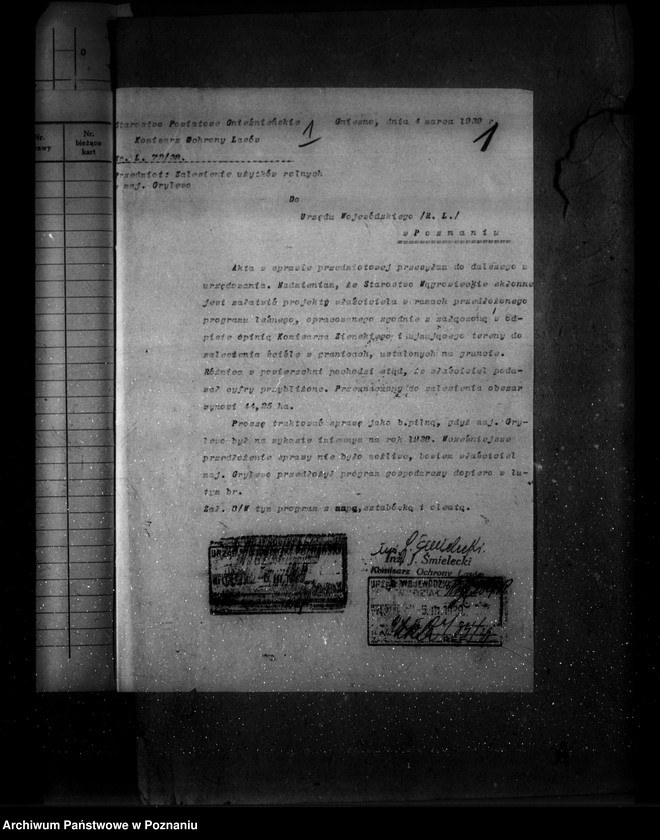 0
Nr.
bieżąca
kart
Starostwo Powiatowe Gnieźnieńskie
Gniezno, dnia 4 marca 1939 r.
1
1
Komisarz Ochrony Lasów
nr. L. 72/39.
Przedmiot: Zalesienie użytków rolnych
w maj. Grylewo
Do
Urzędu Wojewódzkiego /R. L./
w Poznaniu
Akta w sprawie przedmiotowej przesyłam do dalszego
urzędowania. Nadmieniam, że Starostwo Wągrowieckie skłonne
jest załatwić projekty właściciela w ramach przedłożonego
programu leśnego, opracowanego zgodnie z załączoną w od-
pisie opinią Komisarza Ziemskiego i ujmującego tereny do
zalesienia ściśle w granicach, ustalonych na gruncie.
Różnica w powierzchni pochodzi stąd, że właściciel poda-
wał cyfry przybliżone. Przeznaczony do zalesienia obszar
wynosi 44,25 ha.
Proszę traktować sprawę jako b.pilną, gdyż maj. Gry-
lewo był na wykazie imiennym na rok 1939. Wcześniejsze
przedłożenie sprawy nie było możliwe, bowiem właściciel
maj. Grylewo przedłożył program gospodarczy dopiero w lu-
tym br.
Zał. w tym program z mapą, sztabówką i oleatą.
Inż. J. Śmielecki
Komisarz Ochrony Lasów
URZĄD WOJEWÓDZKI
URZĄD WOJEWÓDZKI
WYDZIAŁ
Archiwum Państwowe w Poznaniu